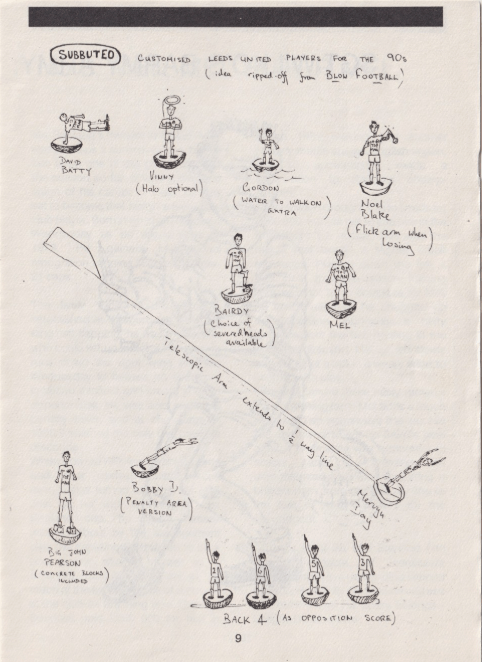 SUBBUTEO CUSTOMISED LEEDS UNITED PLAYERS FOR THE 90s
(idea ripped-off from BLOW FOOTBALL)
DAVID
BATTY
VINNY
(Halo optional)
GORDON
(WATER TO WALK ON
EXTRA
Noel
Blake
(Flick arm when
losing)
BAIRDY
(Choice of
severed heads
available)
MEL
Telescopic Arm - extends to ½ way line
Mervyn
Day
BOBBY D.
(PENALTY AREA
VERSION)
BIG JOHN
PEARSON
(CONCRETE BLOCKS
INCLUDED)
BACK 4 (AS OPPOSITION SCORE)
9